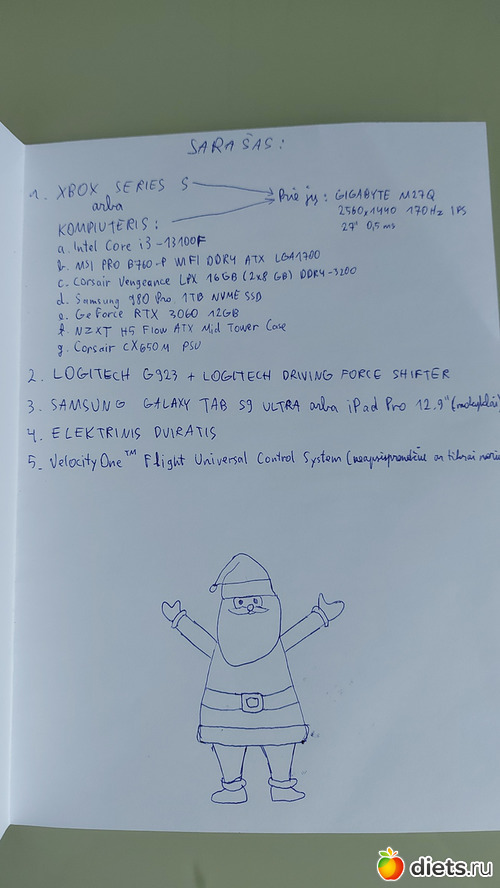 SARAŠAS:
1. XBOX SERIES S
arba
KOMPIUTERIS:
Prie jų: GIGABYTE M27Q
2560x1440 170Hz IPS
27" 0,5 ms
a. Intel Core i3-13100F
b. MSI PRO B760-P WIFI DDR4 ATX LGA1700
c. Corsair Vengeance LPX 16GB (2x8 GB) DDR4-3200
d. Samsung 980 Pro 1TB NVME SSD
e. GeForce RTX 3060 12GB
f. NZXT H5 Flow ATX Mid Tower Case
g. Corsair CX650M PSU
2. LOGITECH G923 + LOGITECH DRIVING FORCE SHIFTER
3. SAMSUNG GALAXY TAB S9 ULTRA arba iPad Pro 12.9"
4. ELEKTRINIS DVIRATIS
5. VelocityOne™ Flight Universal Control System (neapsisprendžiu ar tikrai noriu
diets.ru